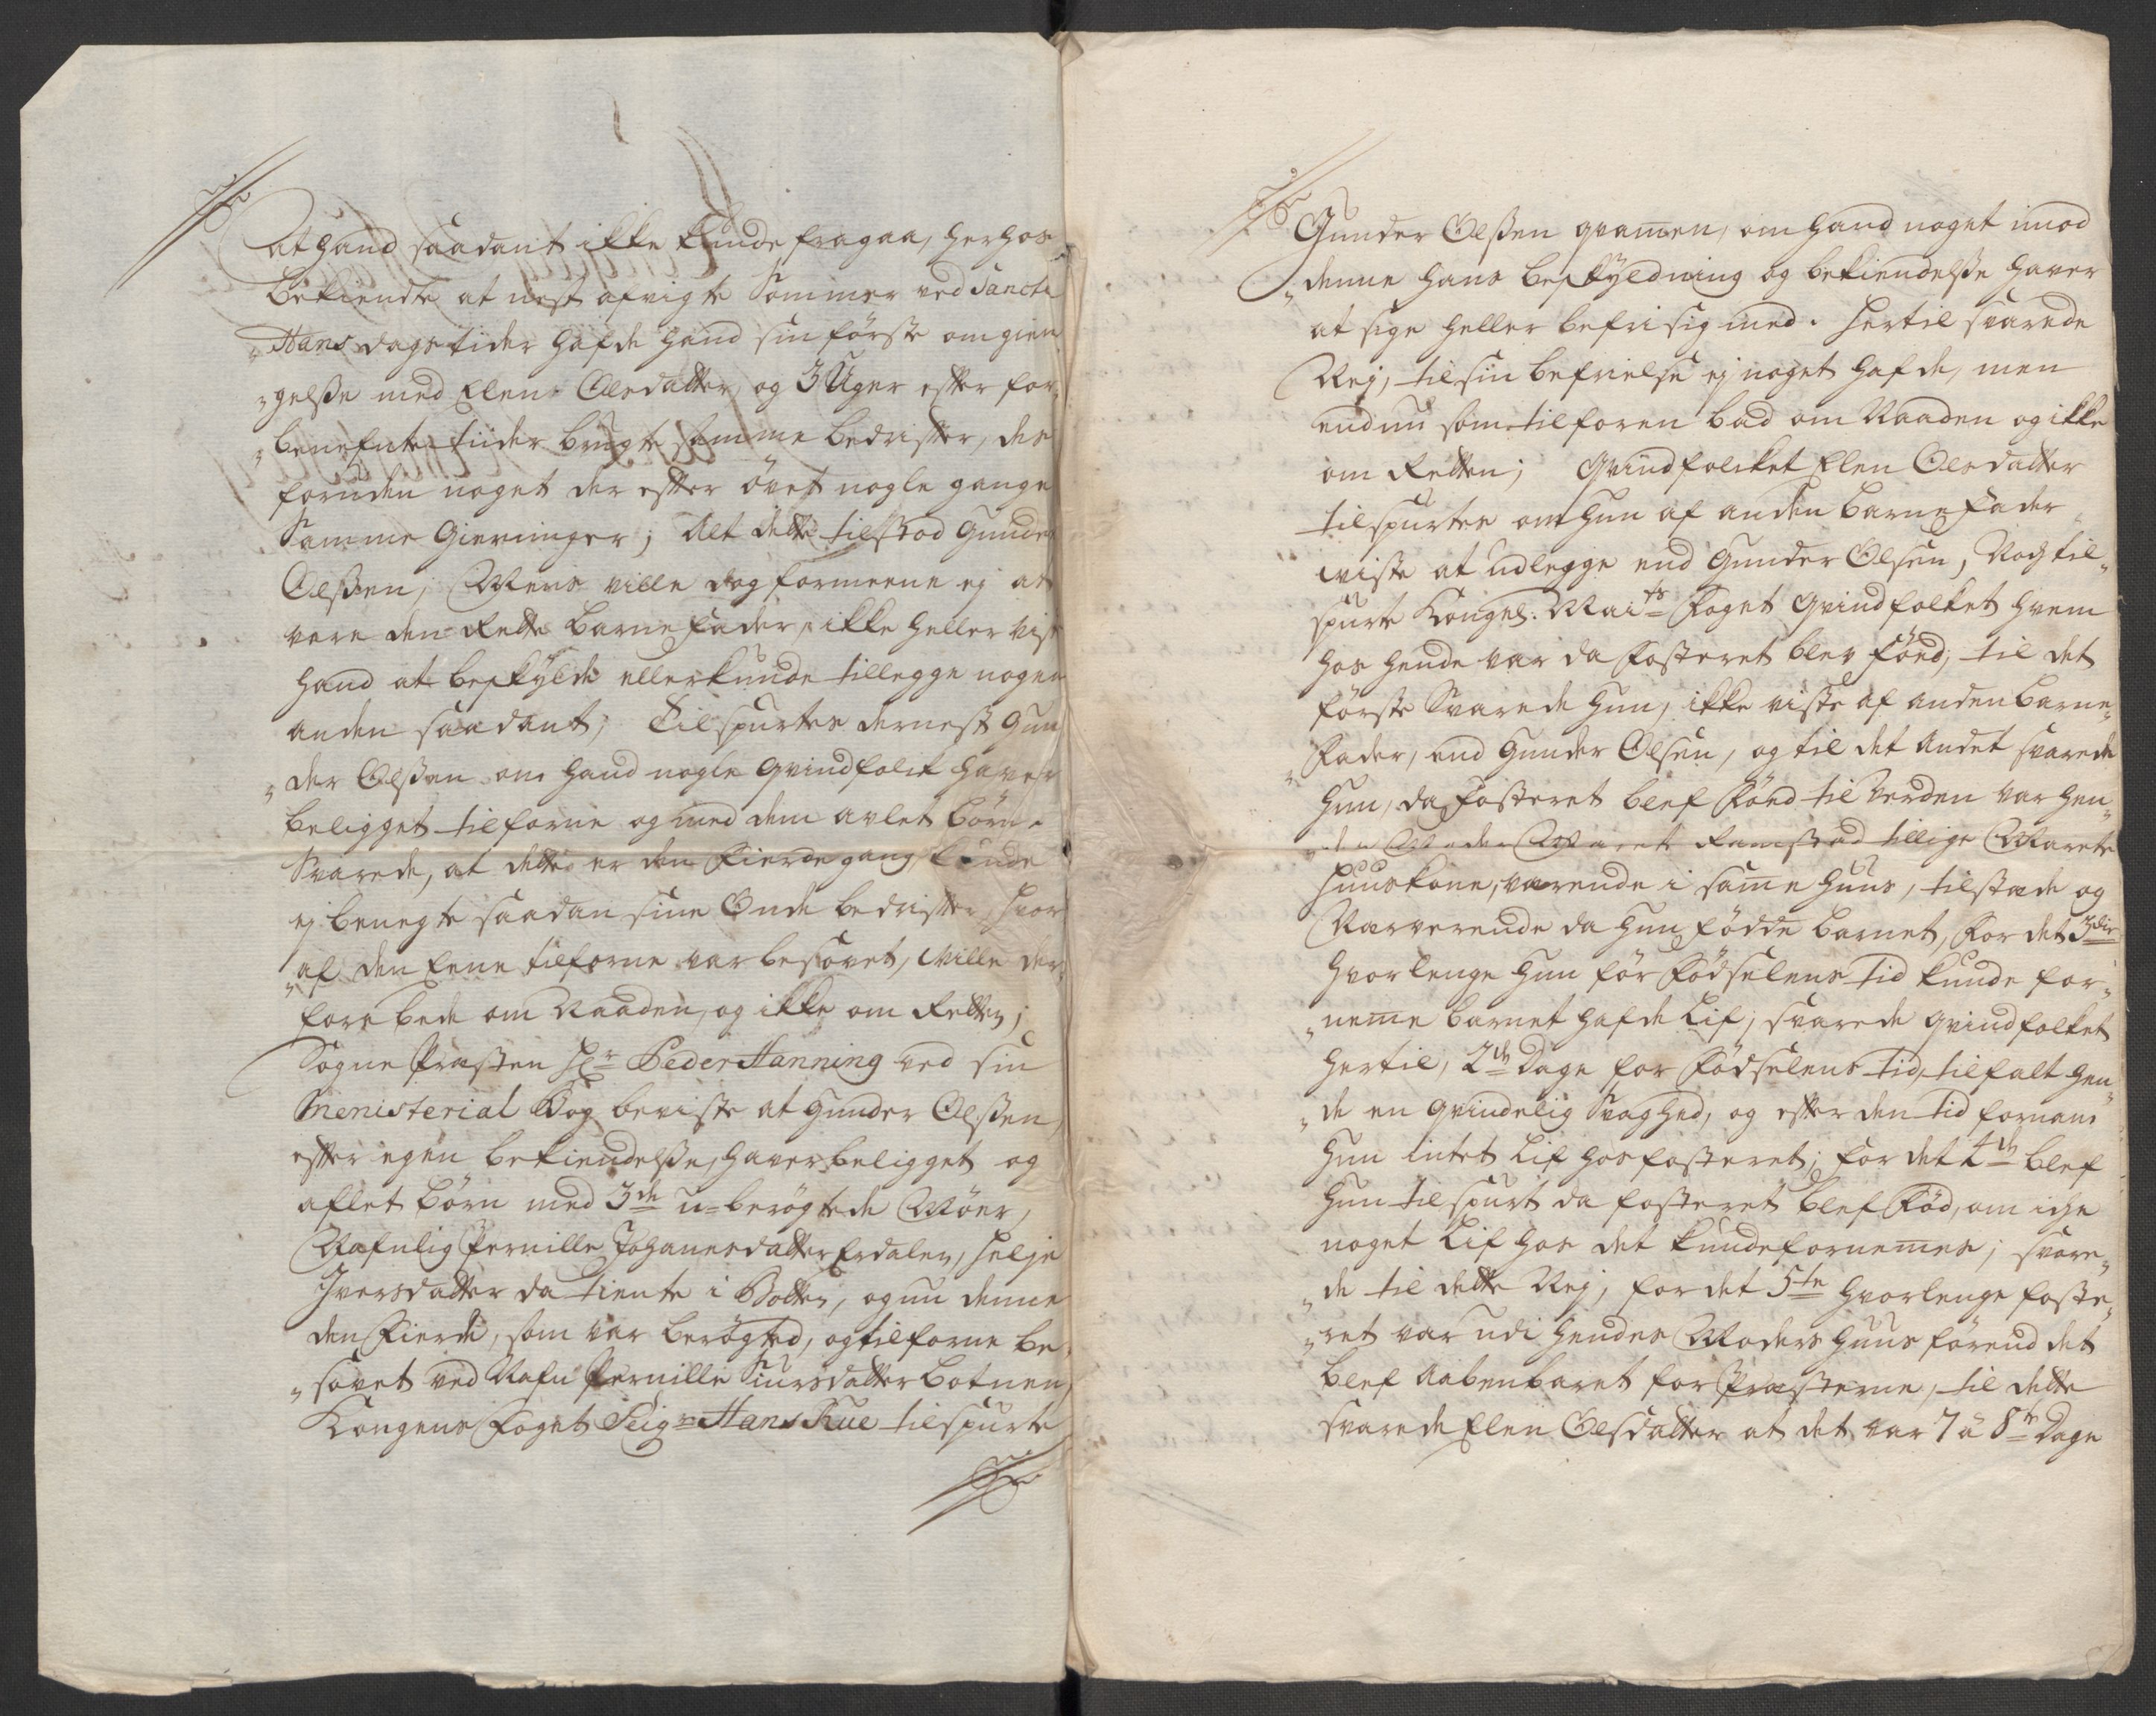 at hand saadant ikke kunde fragaa, herhos
bekiendte at nest afvigte Sommer ved Sancti
Hans dags tider hafde hand sin förste omgien
„gelße med Elen Olsdatter, og 3 Uger efter for„
„benefnte tiider brugte samme bedrifter, des
foruden noget der efter övet nogle gange
Samme Gierninger; Alt dette tilstod Gunder
Olßen; Mens ville dog formeene ej at
vere den Rette Barnefader, ikke heller viste
hand at beskylde eller kunde tillegge nogen
anden saadant; Tilspurtes dernest Gun
„der Olßen om hand nogle qvindfolck haver
beligget tilforne og med dem avlet börn.
Svarede, at dette er den Fierde gang, kunde
ej benegte saadan sine Onde bedrifter, hvor
„af den Eene tilforne var besovet, ville der„
fore bede om Naaden, og ikke om Retten;
Sogne Præsten Hr Peder Hanning ved sin
Menisterial Bog beviste at Gunder Olßen,
efter egen bekiendelße, haver beligget og
aflet börn med 3de u-berögtede Möer,
Nafnlig Pernille Johanesdatter Erdalen, Helje
Iversdatter da tiente i Botten, og nu denne
den Fierde, som var berögted, og tilforne be„
„sovet ved Nafn Pernille Siursdatter Botnen,
Kongens Foget Seigr Hans Rue tilspurte
Gunder Olßen qvamen, om hand noget imod
„denne hans beskyldning og bekiendelße haver
at sige heller befri sig med. Hertil svarede
Nej, til sin befrielse ej noget hafde, men
endnu som tilforen bad om Naaden og ikke
om Retten; Qvindfolcket Elen Olsdatter
tilspurtes om hun af anden Barnefader
viste at udlegge end Gunder Olsen, Nochtil„
spurte Kongel. Maits Foget Qvindfolket hvem
hos hende var da Fosteret blev Föed, til det
förste Svarede hun, ikke viste af anden barne„
„Fader, end Gunder Olsen, og til det andet svarede
hun, da Fosteret blef Föed til Verden var hen„
„des Moder Maret Ramstad tillige Marete
Huuskone, værende i same Huus, tilstæde og
Nærverende da hun födde barnet, For det 3die
hvorlenge hun för Födselens tid kunde for„
„neme barnet hafde Lif; svarede qvindfolket
hertil, 2de Dage for Födselens tid, tilfalt hen„
„de en qvindelig Svaghed, og efter den tid fornam
hun intet Lif hos fosteret; for det 4de blef
hun tilspurt da fosteret blef Föd, om iche
noget Lif hos det kunde fornemes; svare„
„de til dette Nej; for det 5te hvorlenge foste„
„ret var udi hendes Moders Huus förend det
blef aabenbaret for Præsterne, til dette
svarede Elen Olsdatter at det var 7 à 8te Dage